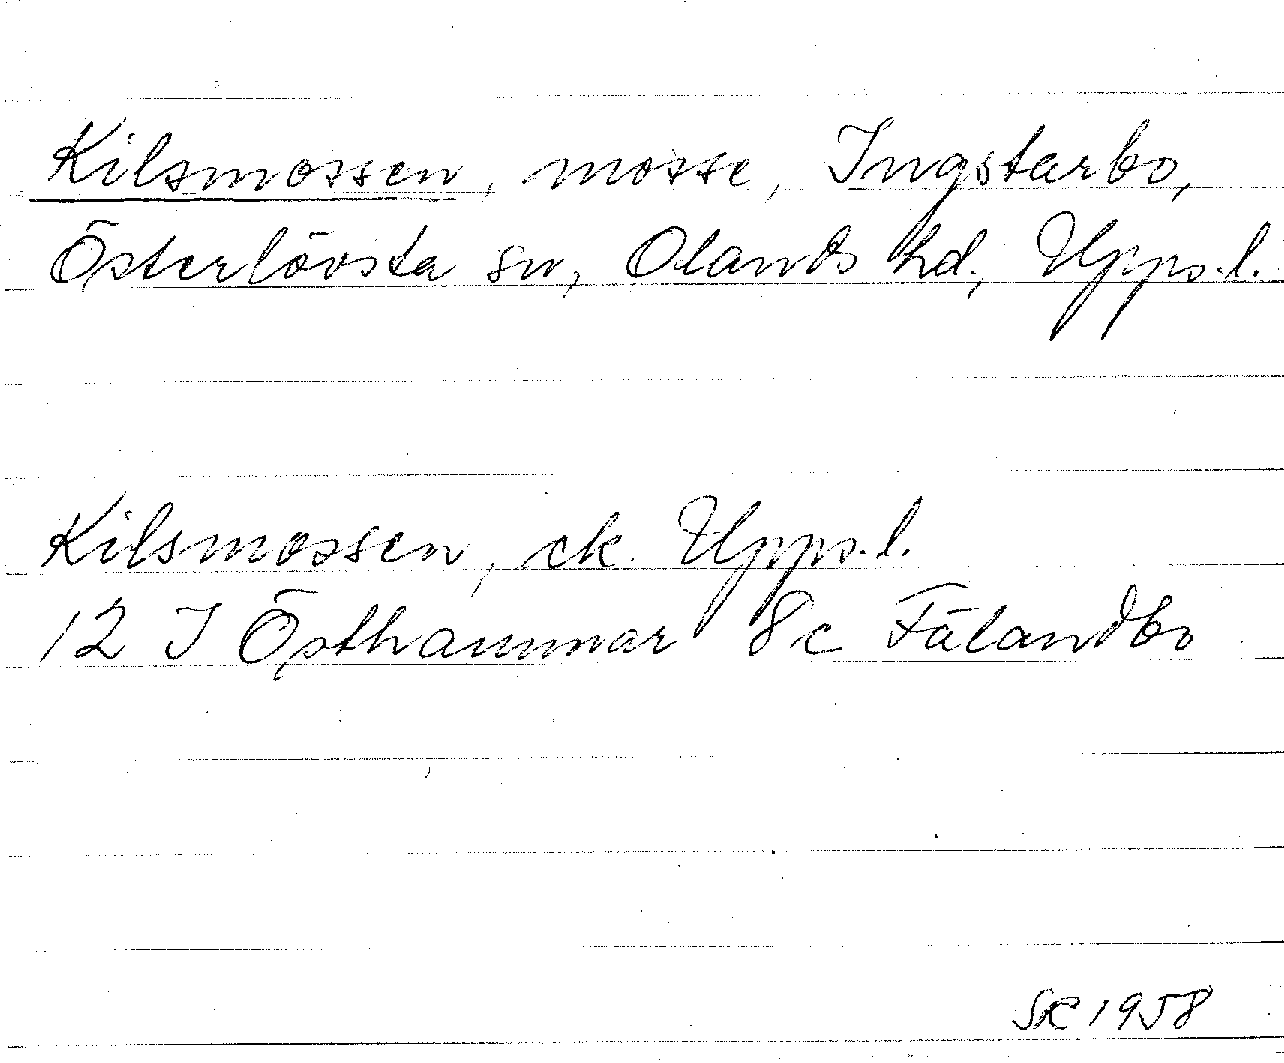 Kilsmossen, mosse, Ingstarbo,
Österlövsta sn, Olands hd., Upps.l.
Kilsmossen, ek. Upps.l.
12 I Östhammar 8c Fälandbo
SK 1958